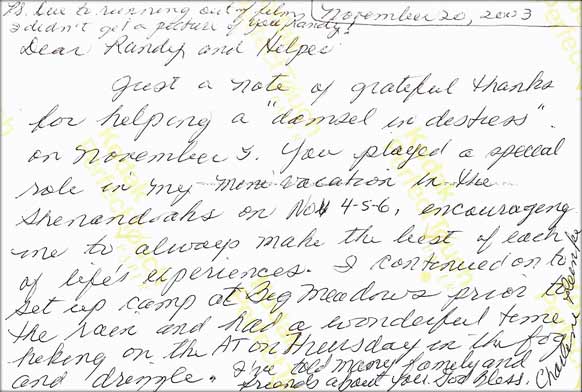 P.S. Due to running out of film
I didn't get a picture of you Randy!
November 20, 2003
Dear Randy and Helper
Just a note of grateful thanks
for helping a "damsel in distress".
on November 3. You played a special
role in my mini vacation in the
Shenandoahs on Nov 4-5-6, encouraging
me to always make the best of each
of life's experiences. I continued on to
set up camp at Big Meadows prior to
the rain and had a wonderful time
hiking on the AT on Thursday in the fog
and drizzle. I've told many family and
friends about you. God bless.
Charlene